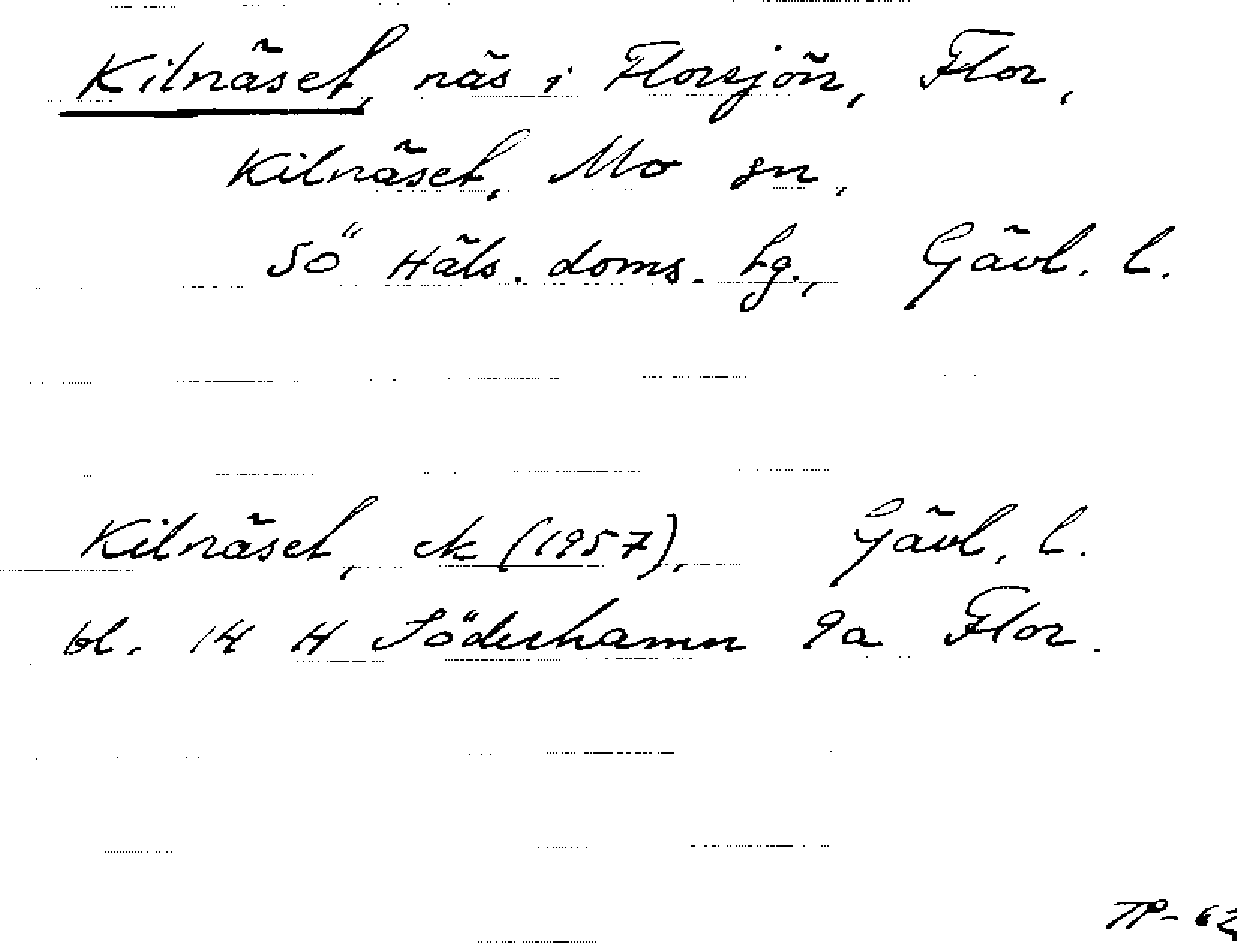 Kilnäset, näs i Florsjön, Flor,
Kilnäset, Mo sn,
Sö Häls. doms. hg., Gävl. l.
Kilnäset, ek (1957), Gävl. l.
bl. 14 H Söderhamn 9a Flor.
TP-62